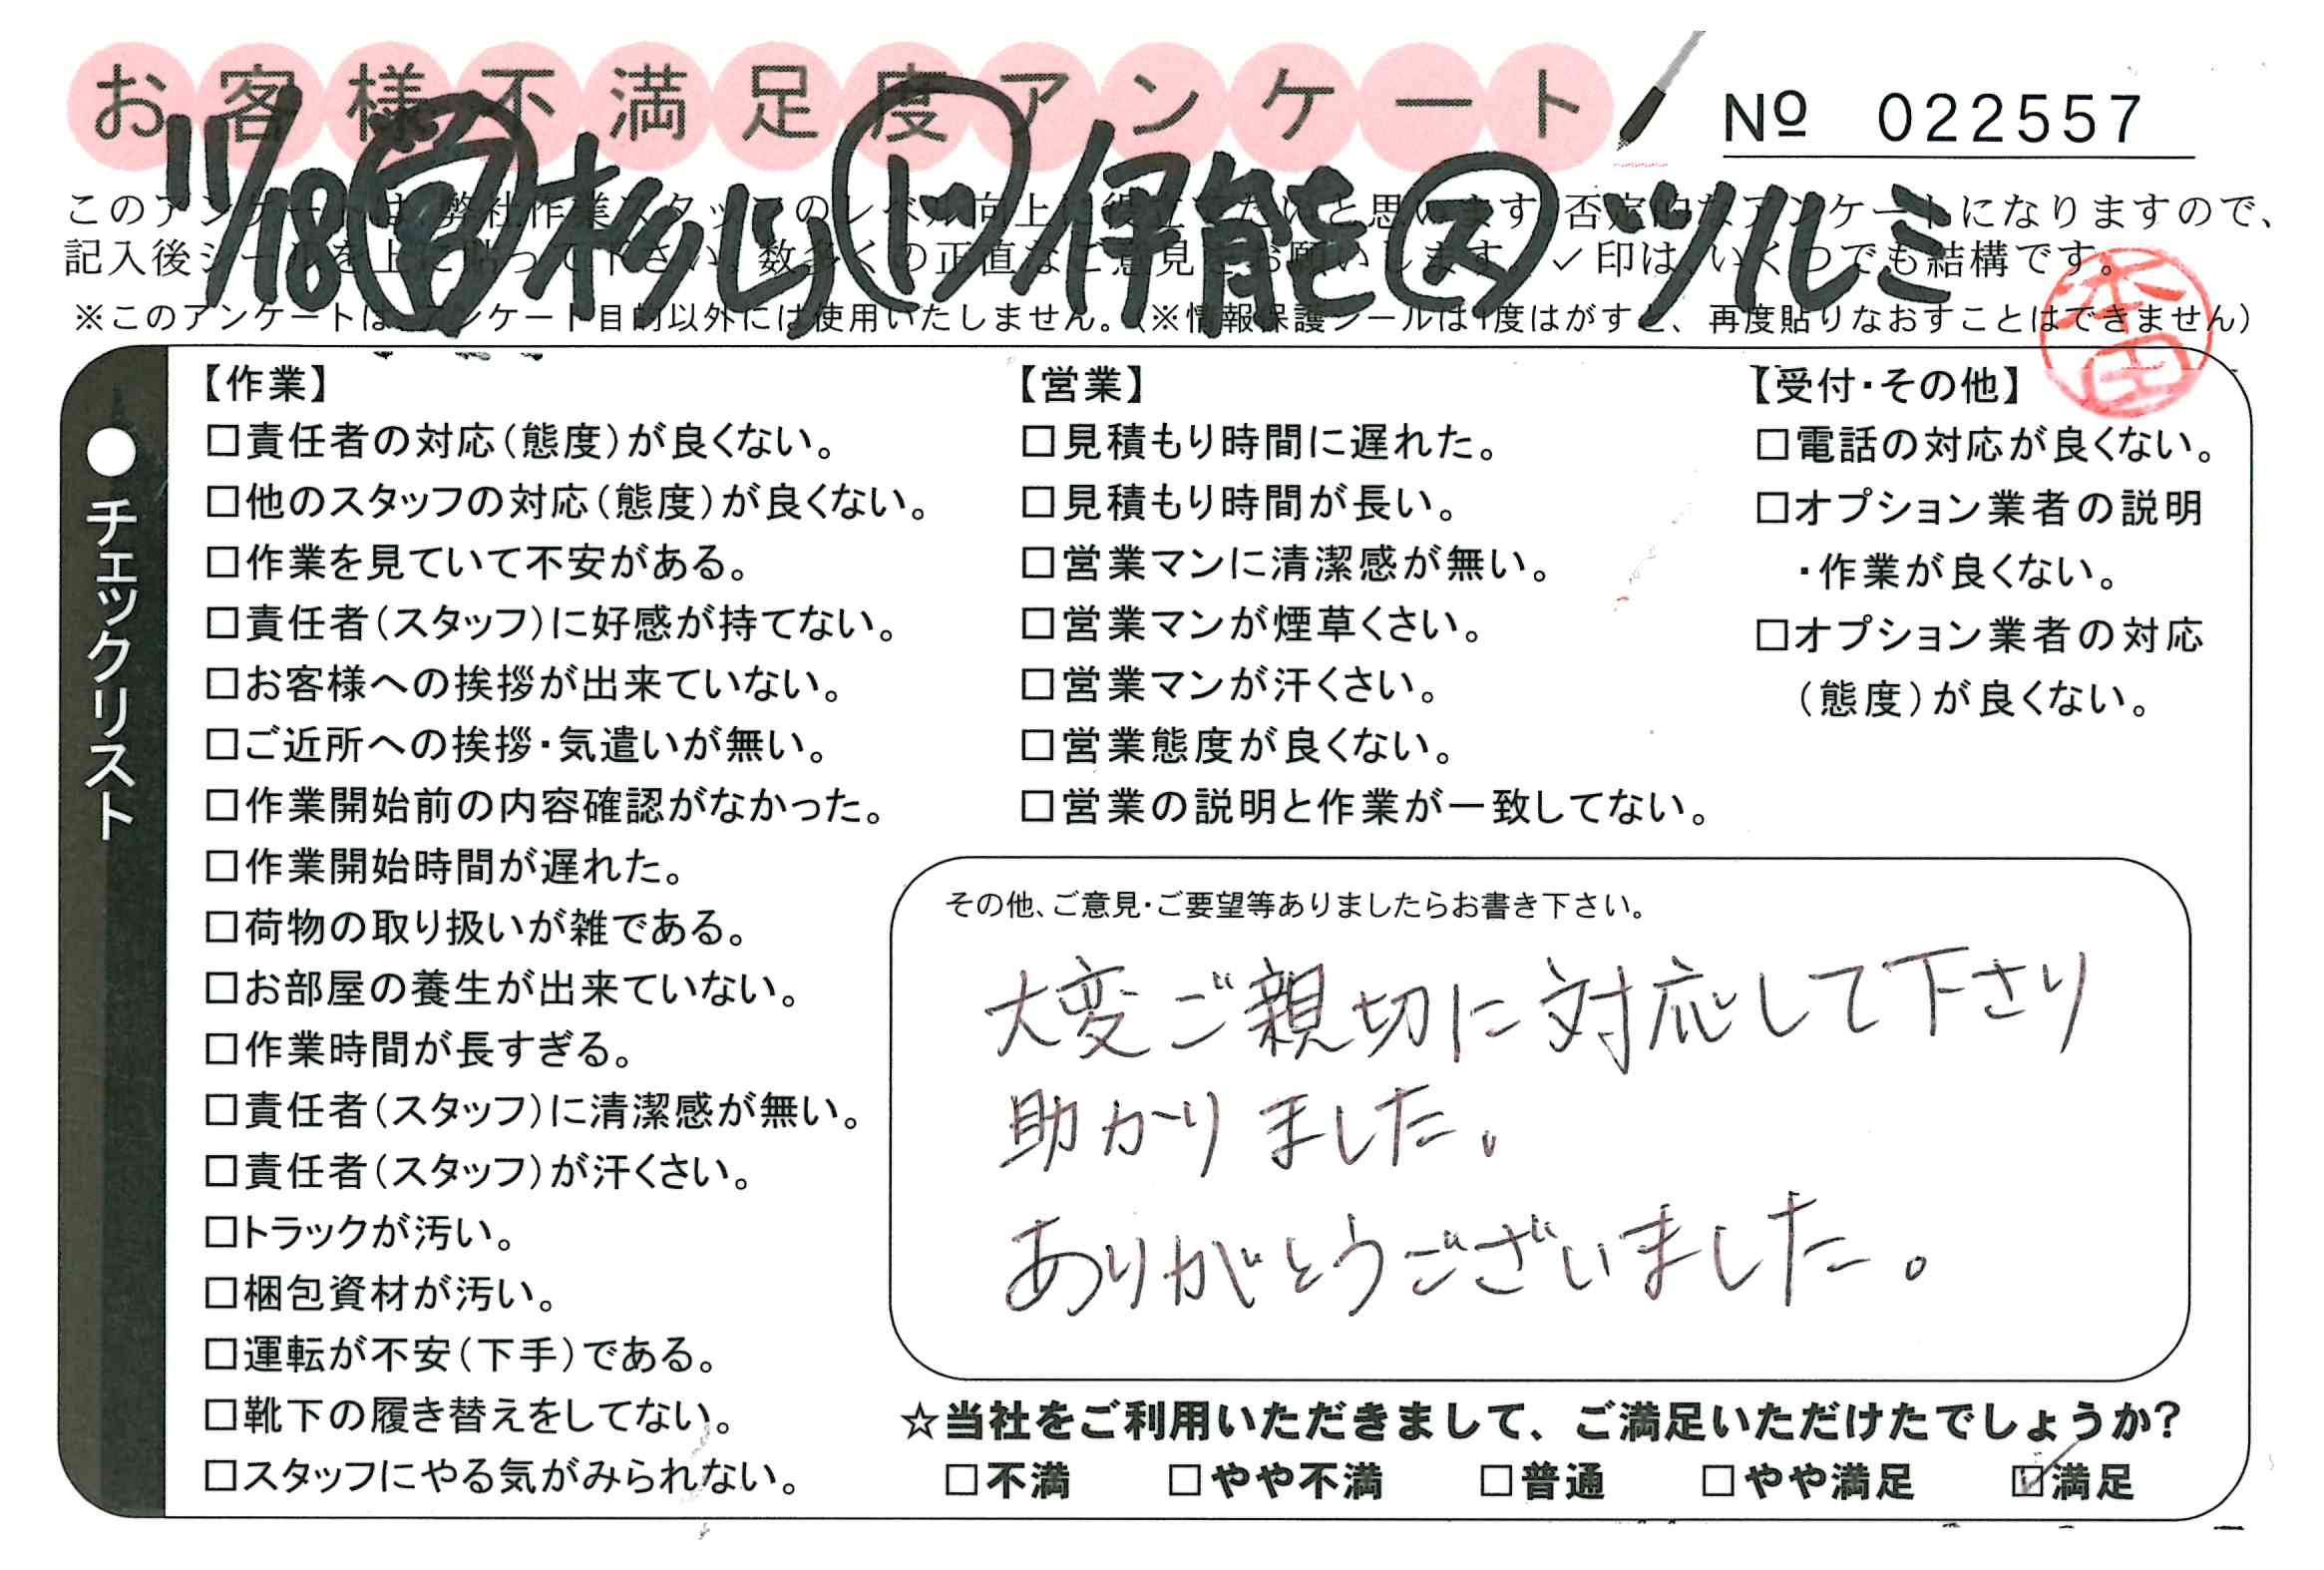 お客様不満足度アンケート
№ 022557
11/18 営 杉山 リ 伊能 ス ツルミ
このアンケートは、弊社作業スタッフのレベル向上に役立てたいと思います。否定的なアンケートになりますので、
記入後シールを上に貼って下さい。数多くの正直なご意見をお願いします。✓印は、いくつでも結構です。
※このアンケートは、アンケート目的以外には使用いたしません。(※情報保護シールは1度はがすと、再度貼りなおすことはできません)
本田
●チェックリスト
【作業】
□責任者の対応(態度)が良くない。
□他のスタッフの対応(態度)が良くない。
□作業を見ていて不安がある。
□責任者(スタッフ)に好感が持てない。
□お客様への挨拶が出来ていない。
□ご近所への挨拶・気遣いが無い。
□作業開始前の内容確認がなかった。
□作業開始時間が遅れた。
□荷物の取り扱いが雑である。
□お部屋の養生が出来ていない。
□作業時間が長すぎる。
□責任者(スタッフ)に清潔感が無い。
□責任者(スタッフ)が汗くさい。
□トラックが汚い。
□梱包資材が汚い。
□運転が不安(下手)である。
□靴下の履き替えをしてない。
□スタッフにやる気がみられない。
【営業】
□見積もり時間に遅れた。
□見積もり時間が長い。
□営業マンに清潔感が無い。
□営業マンが煙草くさい。
□営業マンが汗くさい。
□営業態度が良くない。
□営業の説明と作業が一致してない。
【受付・その他】
□電話の対応が良くない。
□オプション業者の説明
・作業が良くない。
□オプション業者の対応
(態度)が良くない。
その他、ご意見・ご要望等ありましたらお書き下さい。
大変ご親切に対応して下さり
助かりました。
ありがとうございました。
☆当社をご利用いただきまして、ご満足いただけたでしょうか?
□不満 □やや不満 □普通 □やや満足 ☑満足